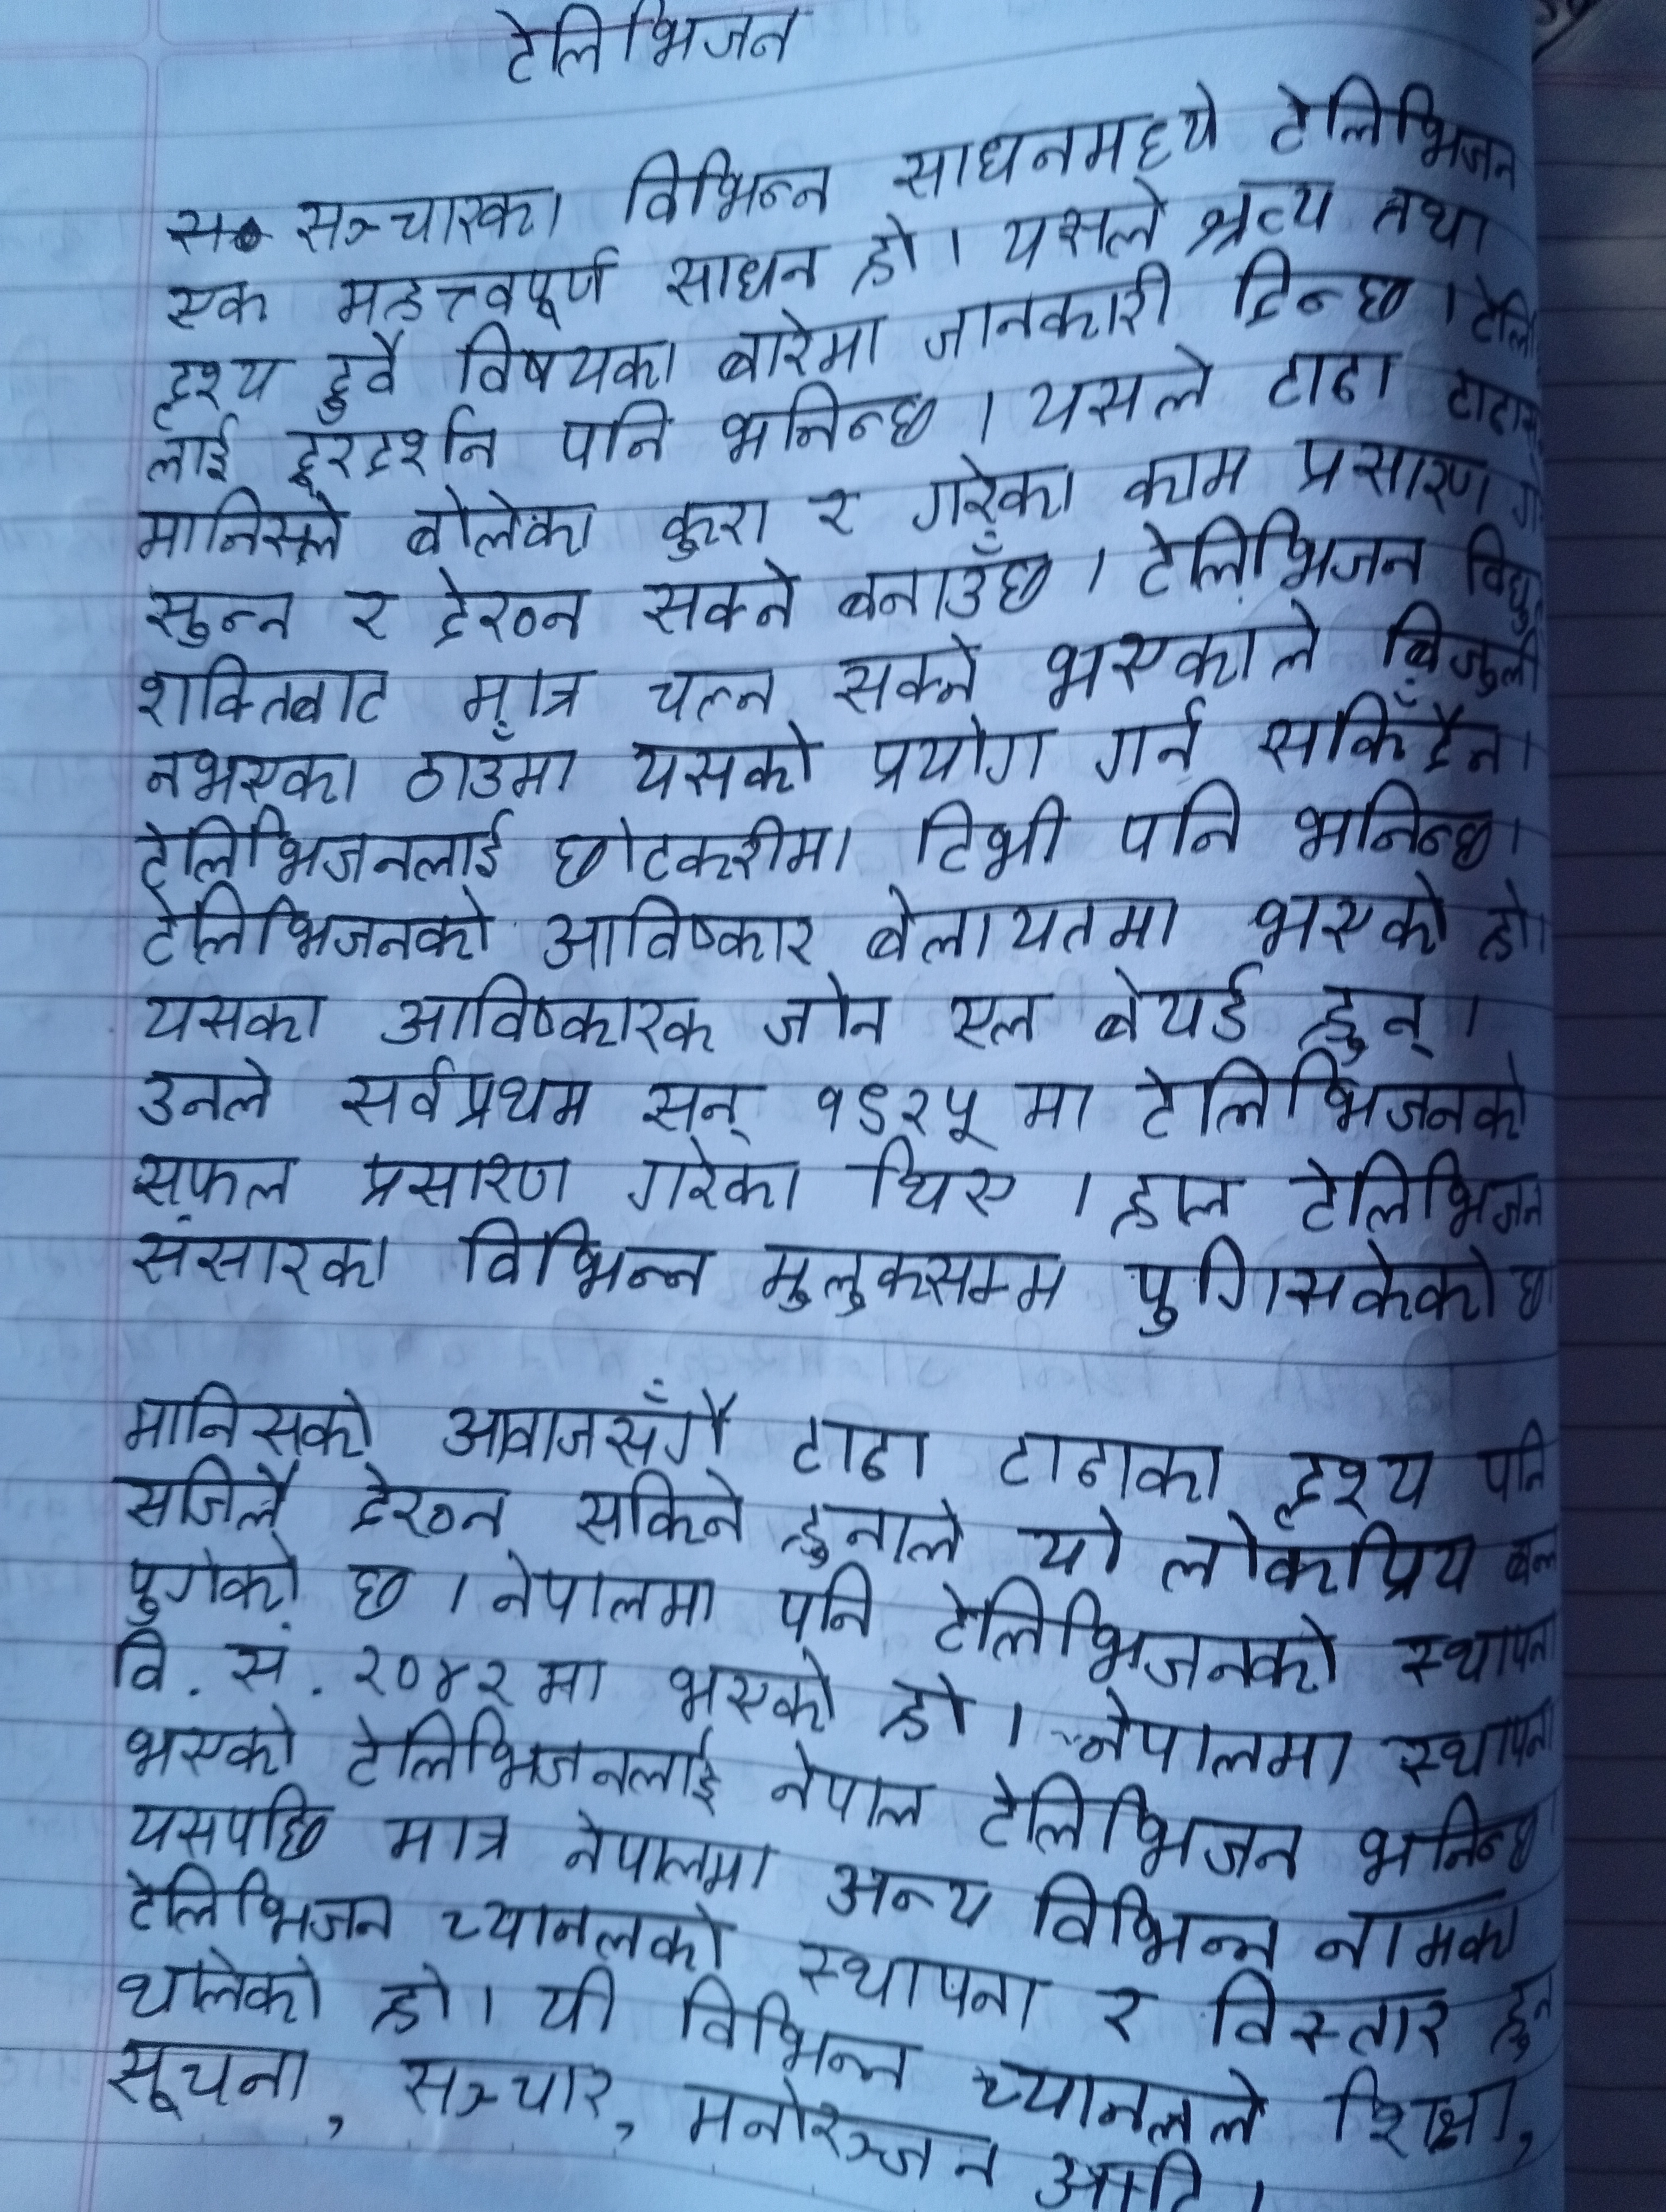 टेलिभिजन
सञ्चारका विभिन्न साधनमध्ये टेलिभिजन
एक महत्त्वपूर्ण साधन हो। यसले श्रव्य तथा
दृश्य दुवै विषयका बारेमा जानकारी दिन्छ। टेलि
लाई दूरदर्शन पनि भनिन्छ। यसले टाढा टाढाका
मानिसले बोलेका कुरा र गरेका काम प्रसारण
सुन्न र देख्न सक्ने बनाउँछ। टेलिभिजन विद्युत
शक्तिबाट मात्र चल्न सक्ने भएकाले बिजुली
नभएका ठाउँमा यसको प्रयोग गर्न सकिँदैन।
टेलिभिजनलाई छोटकरीमा टिभी पनि भनिन्छ।
टेलिभिजनको आविष्कार बेलायतमा भएको हो।
यसका आविष्कारक जोन एल बेयर्ड हुन्।
उनले सर्वप्रथम सन् १९२५ मा टेलिभिजनको
सफल प्रसारण गरेका थिए। हाल टेलिभिजन
संसारका विभिन्न मुलुकसम्म पुगिसकेको छ
मानिसको आवाजसँगै टाढा टाढाका दृश्य पनि
सजिलै देख्न सकिने हुनाले यो लोकप्रिय बन्न
पुगेको छ। नेपालमा पनि टेलिभिजनको स्थापना
वि. सं. २०४२ मा भएको हो। नेपालमा स्थापना
भएको टेलिभिजनलाई नेपाल टेलिभिजन भनिन्छ
यसपछि मात्र नेपालमा अन्य विभिन्न नामका
टेलिभिजन च्यानलको स्थापना र विस्तार हुन
थालेको हो। यी विभिन्न च्यानलले शिक्षा,
सूचना, सञ्चार, मनोरञ्जन आदि।